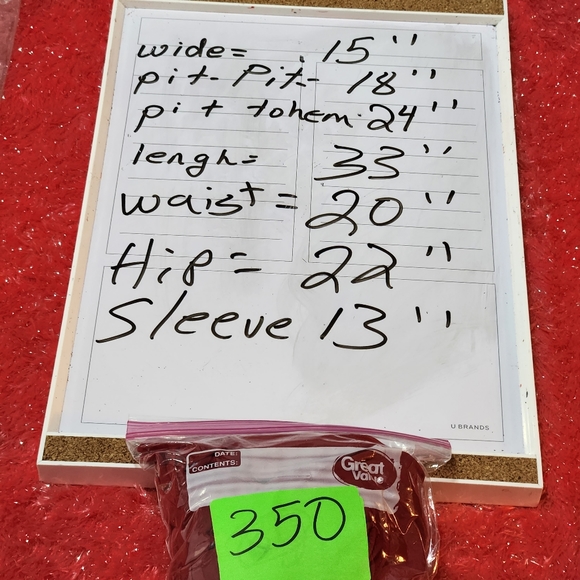 wide= 15"
pit- Pit- 18"
pit tohem. 24"
lengh= 33"
waist= 20"
Hip= 22"
Sleeve 13"
U BRANDS
DATE:
CONTENTS:
Great
Value
350